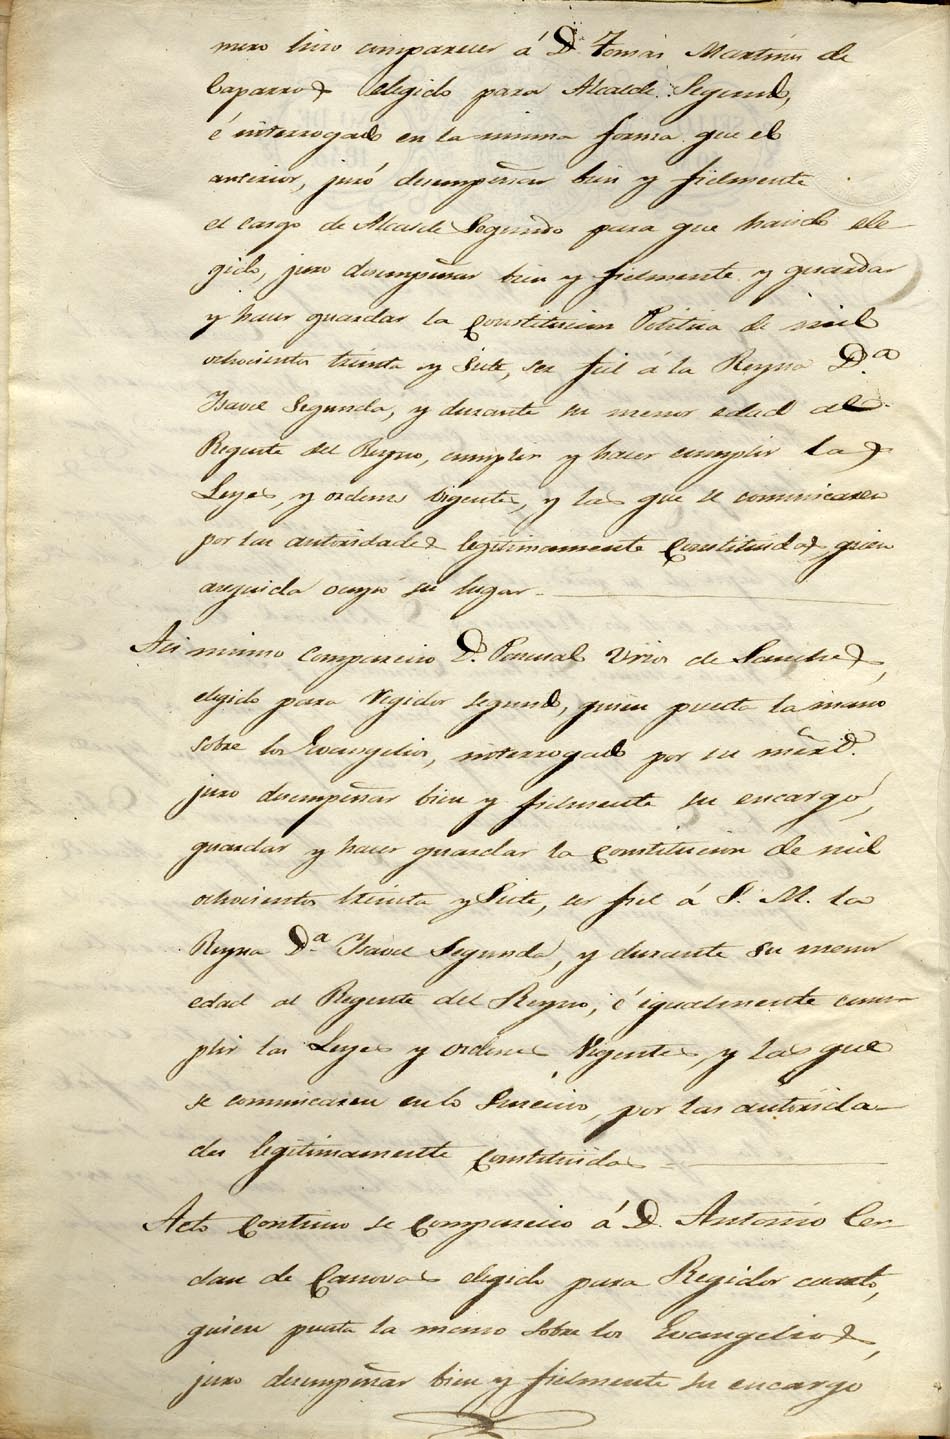 mero hizo comparecer á D. Tomás Martinez de
Caparros elegido para Alcalde Segundo,
é interrogado en la misma forma que el
anterior, juró desempeñar bien y fielmente
el cargo de Alcalde Segundo para que ha sido ele-
gido, juro desempeñar bien y fielmente y guardar
y hacer guardar la Constitucion Politica de mil
ochocientos treinta y Siete, ser fiel á la Reyna D.ª
Isavel Segunda, y durante su menor edad al
Regente del Reyno, cumplir y hacer cumplir las
Leyes, y ordenes vigentes, y las que se comunicaren
por las autoridades legitimamente Constituidas, quien
en seguida ocupó su lugar.
Asi mismo comparecio D. Pascual Vrios de Sanchez,
elegido para Regidor segundo, quien puesta la mano
sobre los Evangelios, interrogado por su mrd.
juro desempeñar bien y fielmente su encargo,
guardar y hacer guardar la Constitucion de mil
ochocientos treinta y Siete, ser fiel á S. M. la
Reyna D.ª Isavel Segunda, y durante su menor
edad al Regente del Reyno, é igualmente cum-
plir las Leyes y ordenes Vigentes, y las que
se comunicaren en lo Sucecivo, por las autorida-
des legitimamente Constituidas
Acto Continuo se Comparecio á D. Antonio Cer-
dan de Canovas elegido para Regidor cuarto,
quien puesta la mano sobre los Evangelios,
juro desempeñar bien y fielmente su encargo